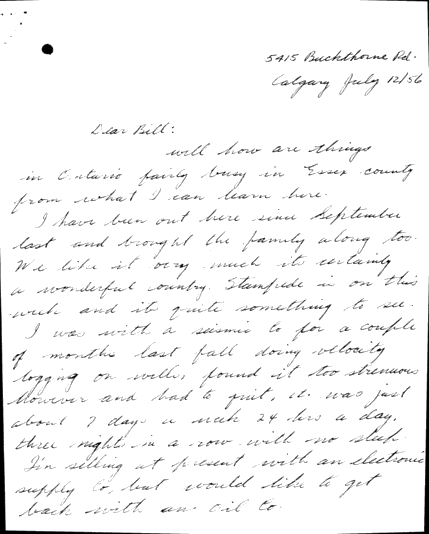 5415 Buckthorne Rd.
Calgary July 12/56
Dear Bill:
well how are things
in Ontario fairly busy in Essex county
from what I can learn here.
I have been out here since September
last and brought the family along too.
We like it very much its certainly
a wonderful country. Stampede is on this
week and its quite something to see.
I was with a seismic Co for a couple
of months last fall doing velocity
logging on wells, found it too strenuous
however and had to quit, it was just
about 7 days a week 24 hrs a day,
three nights in a row with no sleep.
I'm selling at present with an electronic
supply Co, but would like to get
back with an oil Co.